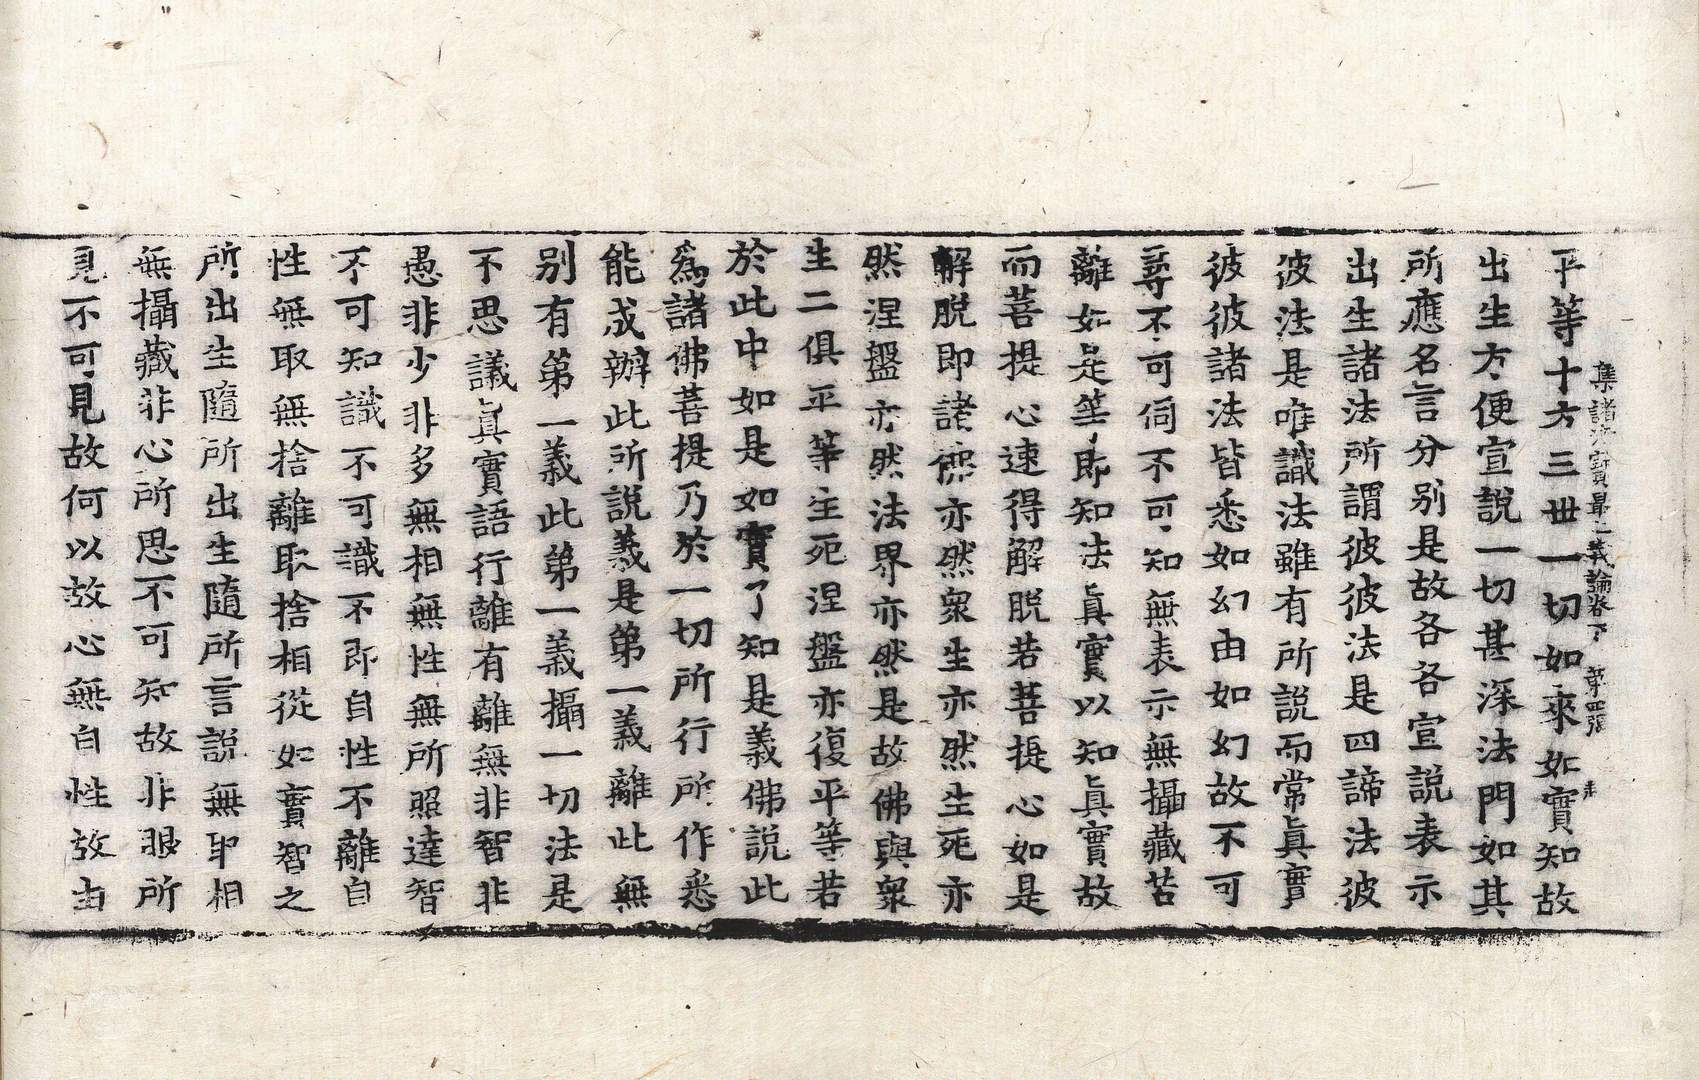 集諸法寶最上義論卷下 第四張
平等十方三世一切如來如實知故
出生方便宣說一切甚深法門如其
所應名言分別是故各各宣說表示
出生諸法所謂彼彼法是四諦法彼
彼法是唯識法雖有所說而常眞實
彼彼諸法皆悉如幻由如幻故不可
尋不可伺不可知無表示無攝藏苦
離如是等即知法眞實以知眞實故
而菩提心速得解脫若菩提心如是
解脫即諸佛亦然衆生亦然生死亦
然涅盤亦然法界亦然是故佛與衆
生二俱平等生死涅盤亦復平等若
於此中如是如實了知是義佛說此
爲諸佛菩提乃於一切所行所作悉
能成辦此所說義是第一義離此無
別有第一義此第一義攝一切法是
不思議眞實語行離有離無非智非
愚非少非多無相無性無所照達智
不可知識不可識不即自性不離自
性無取無捨離取捨相從如實智之
所出生隨所出生隨所言說無取相
無攝藏非心所思不可知故非眼所
見不可見故何以故心無自性故由